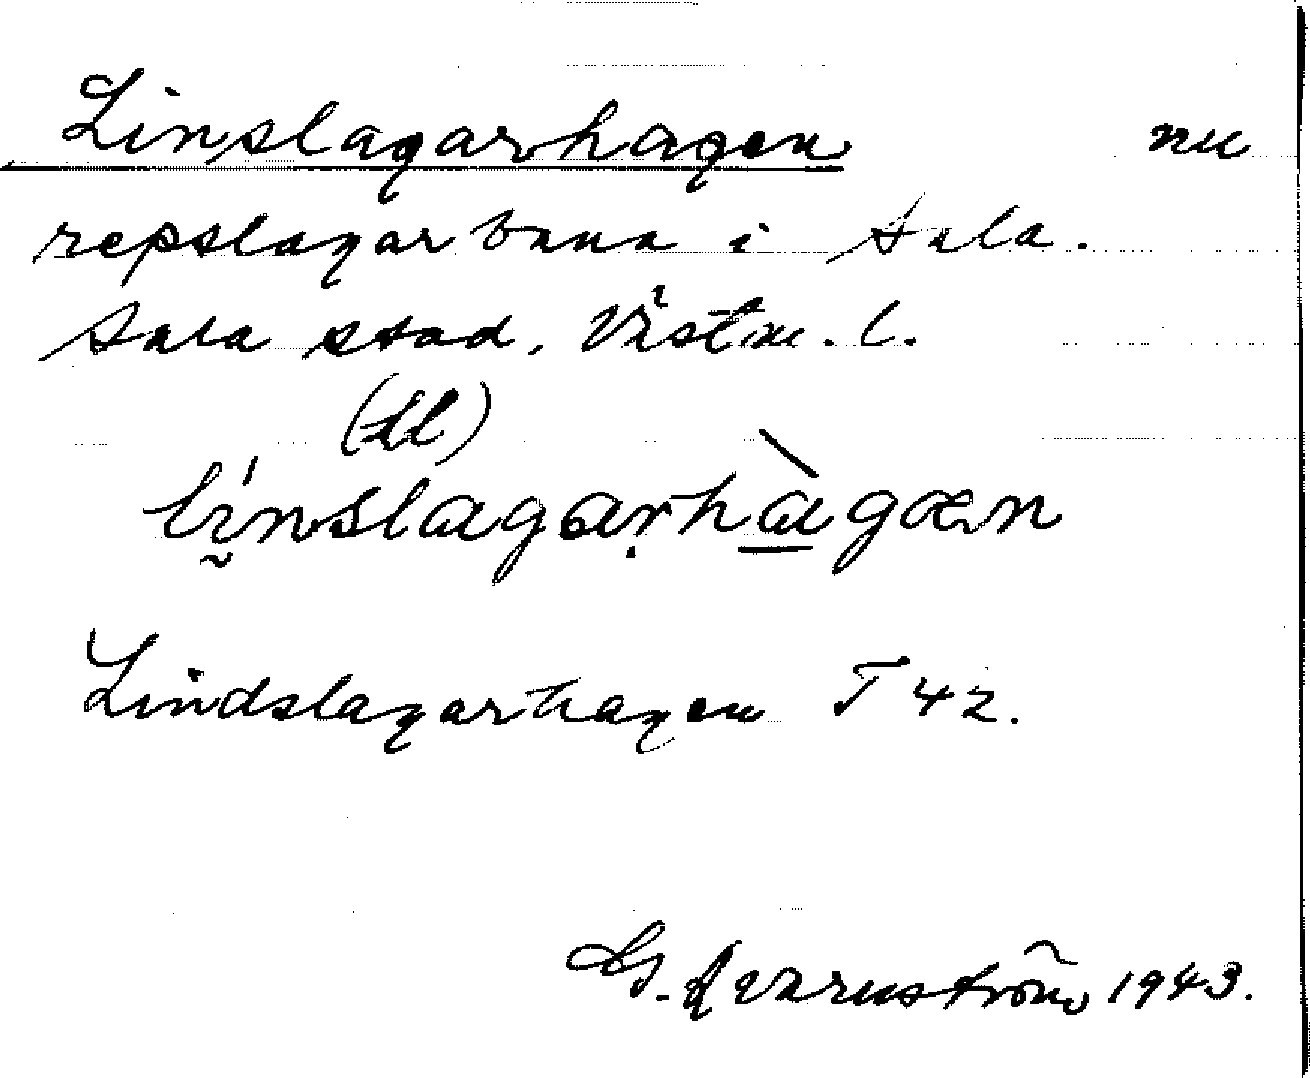 Linslagarhagen nu
repslagarbana i Sala.
Sala stad, Västm. l.
(sl)
línslagarhàgæn
Lindslagarhagen T 42.
G. Kvarnström 1943.